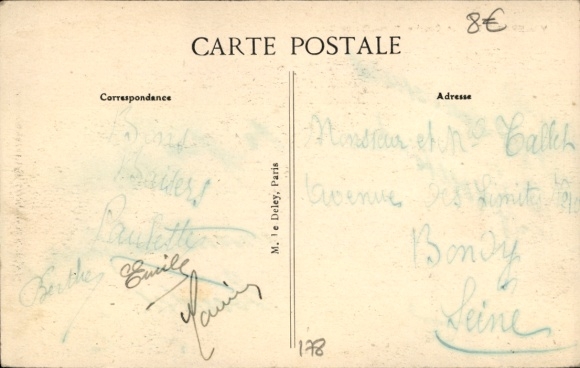 8€
CARTE POSTALE
Correspondance
Adresse
Bons
Baisers
Paulette
Berthe
Emile
M. Le Deley, Paris
Monsieur et Mme Tallet
Avenue Des Limites
Bondy
Seine
178